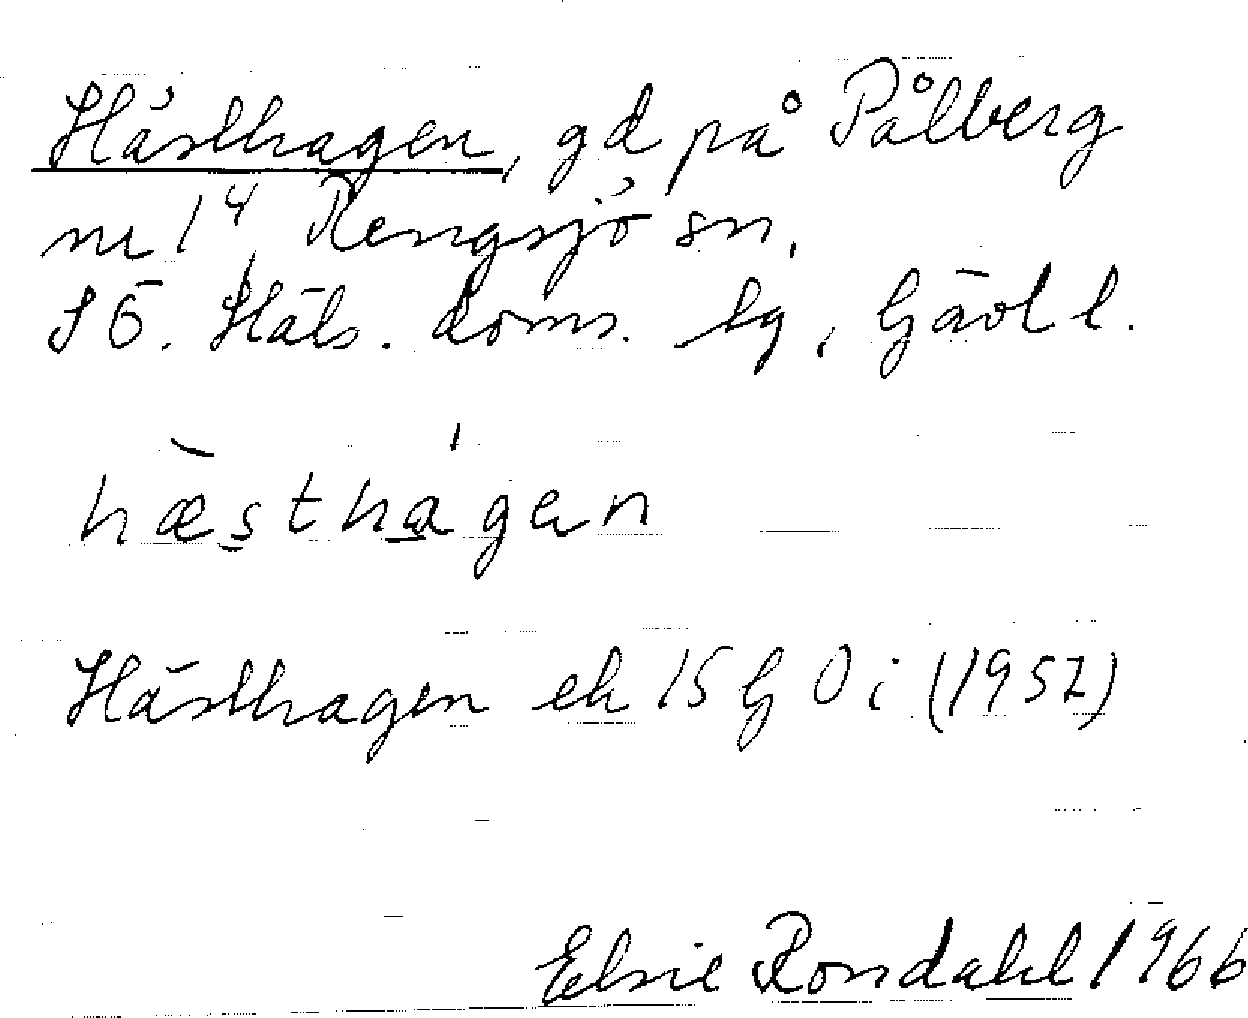 Hästhagen, gd på Pålberg
nr 1⁴, Rengsjö sn,
SÖ. Häls. doms. lg, Gävl l.
hæ̀sthágen
Hästhagen ek 15 G 0 i (1957)
Elsie Rondahl 1966